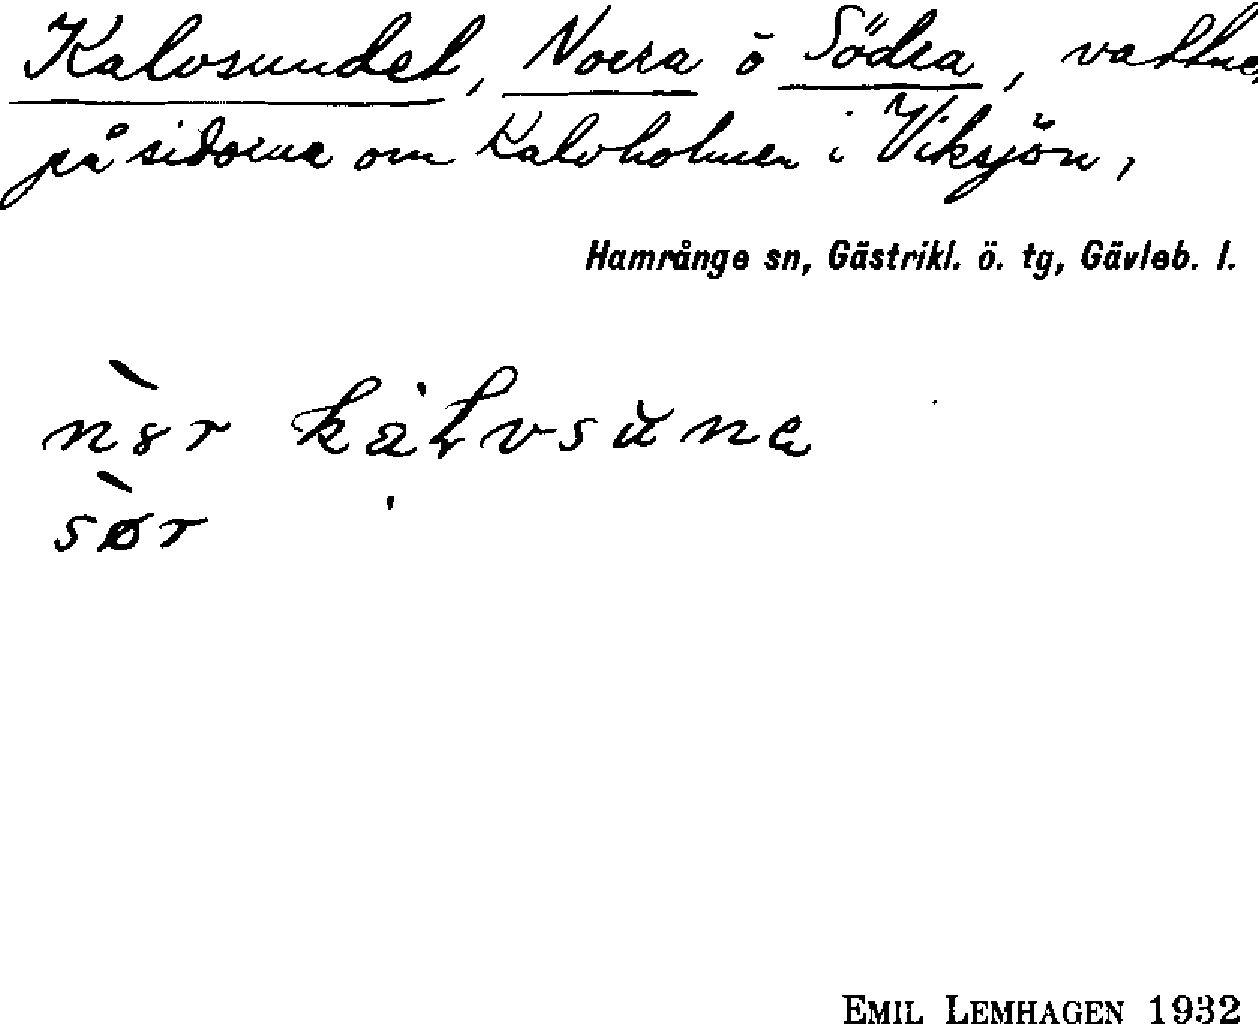 Kalvsundet, Norra o Södra, vattne
på sidorna om Kalvholmen i Viksjön,
Hamrånge sn, Gästrikl. ö. tg, Gävleb. l.
sør
EMIL LEMHAGEN 1932